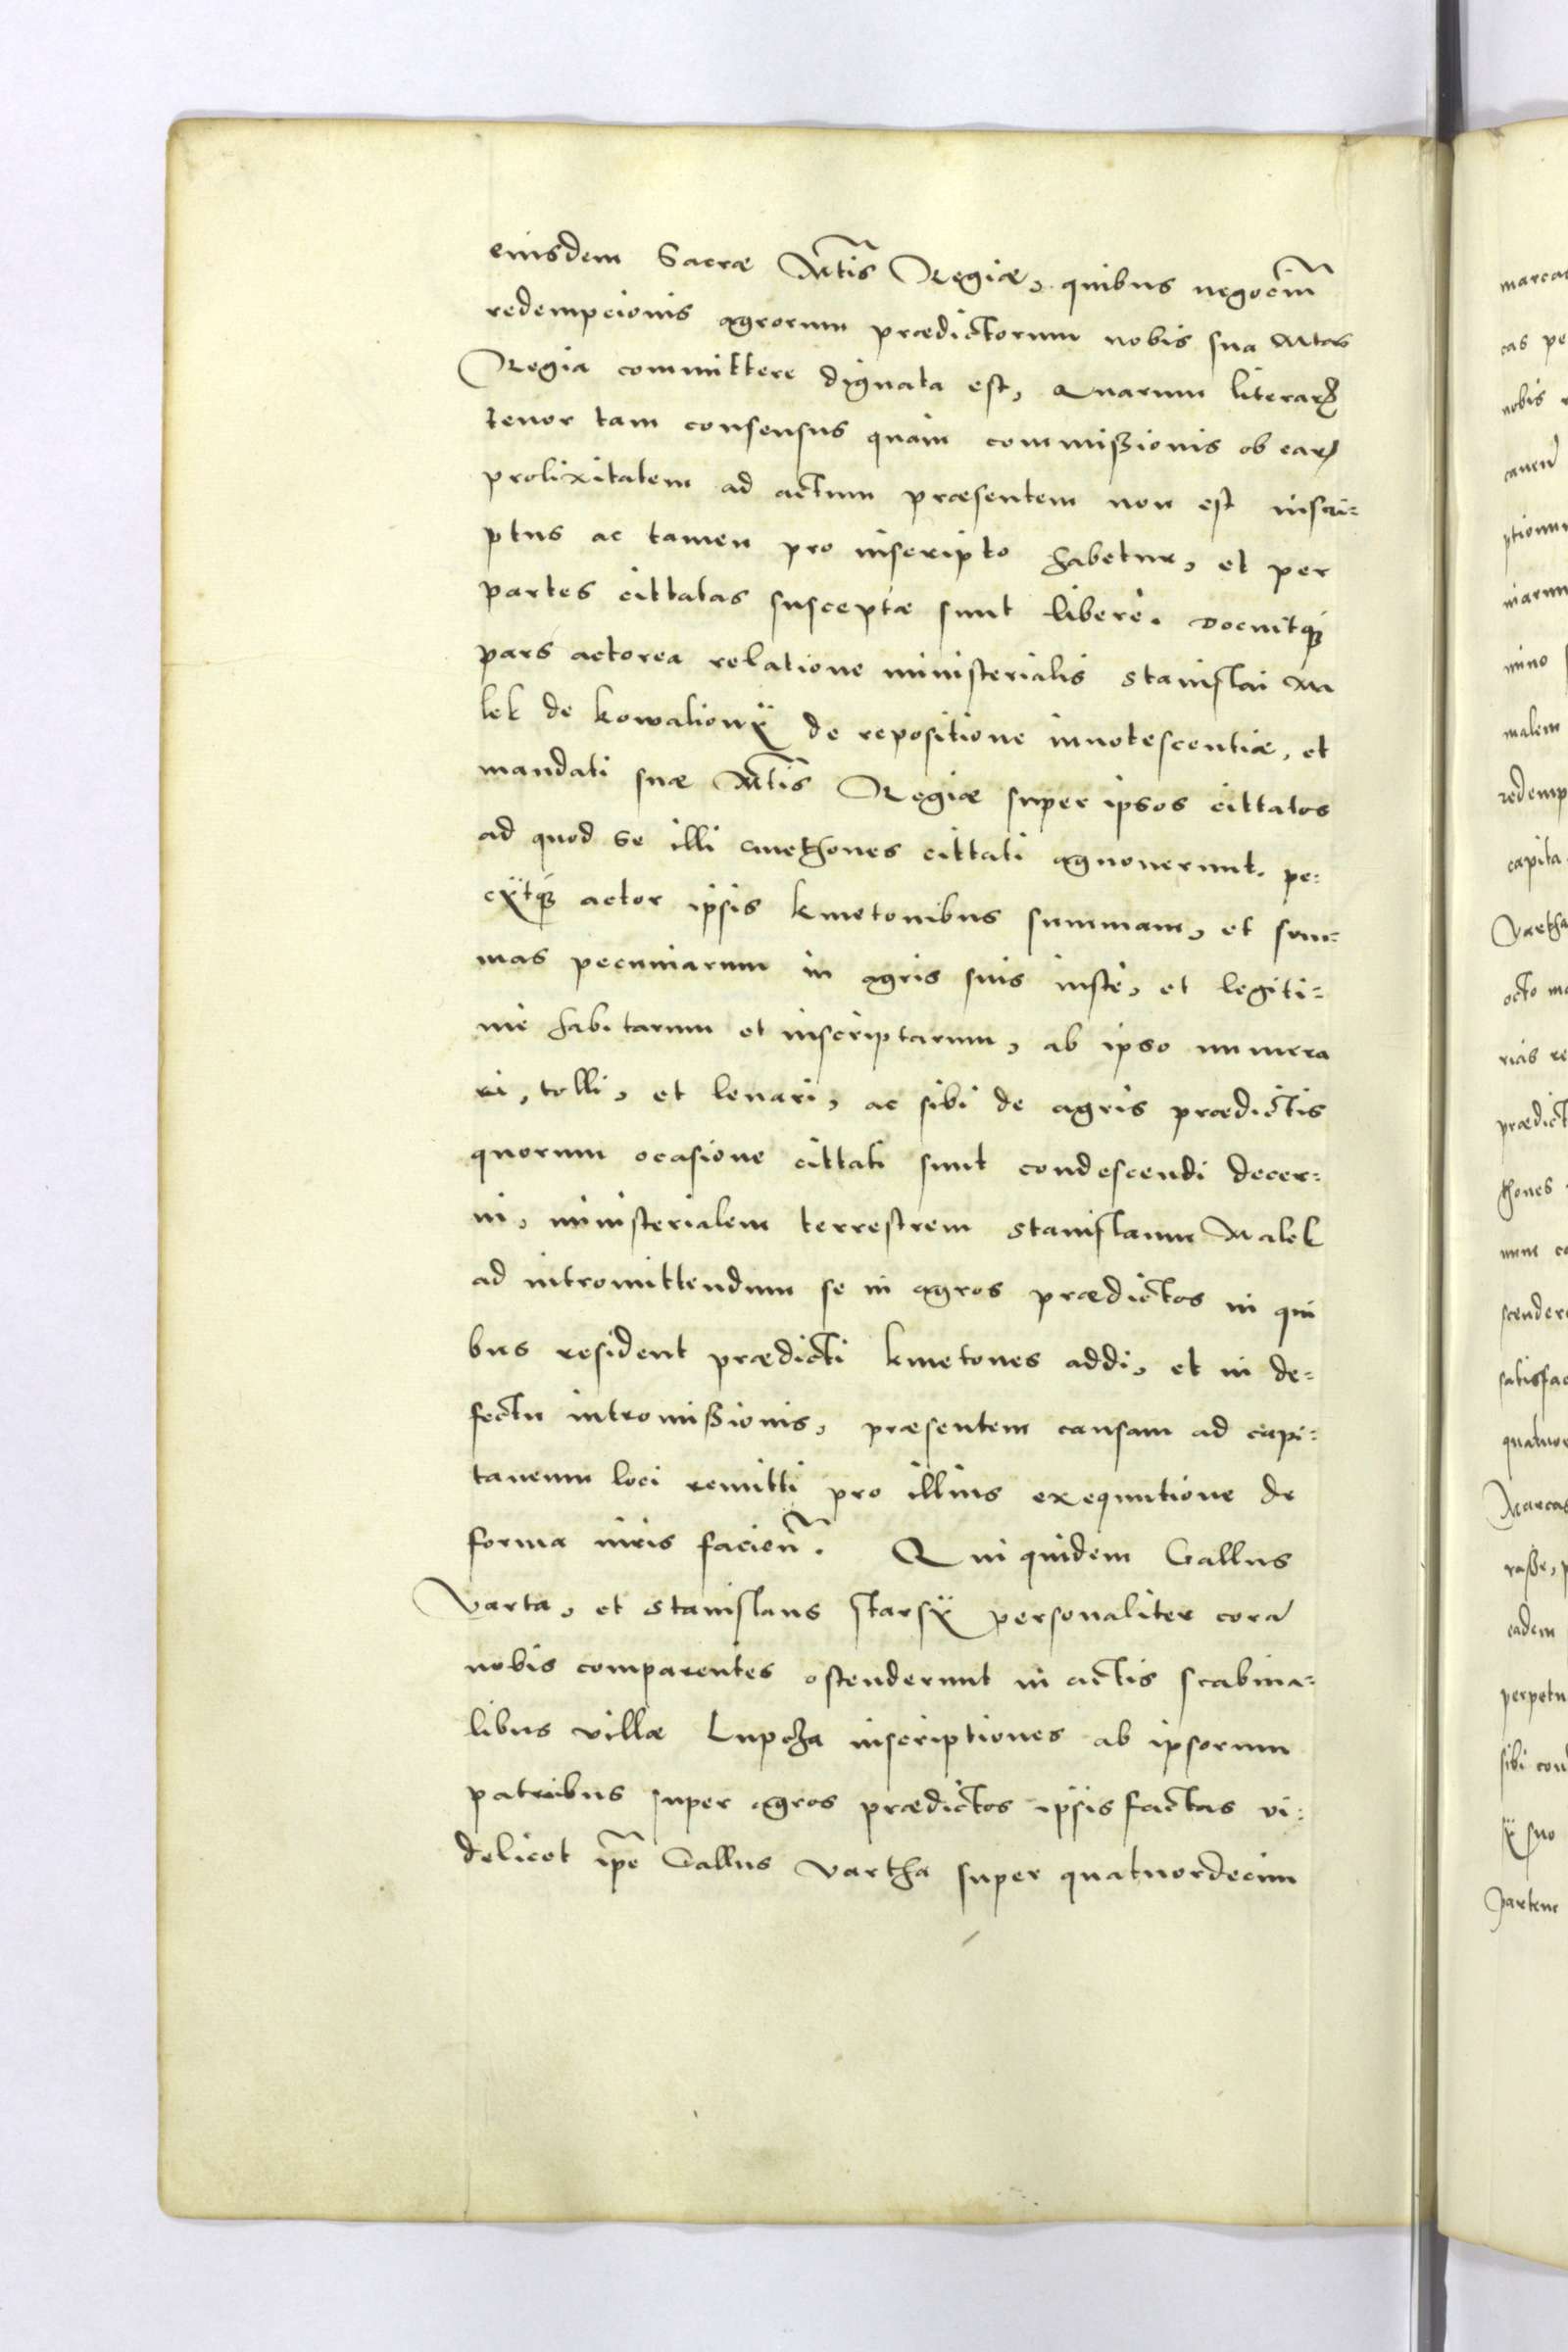 eiusdem Sacræ Mtis Regiæ, quibus negocium
redempcionis agrorum prædictorum nobis sua Mtas
Regia committere dignata est, Quarum literarꝝ
tenor tam consensus quam commißionis ob earꝝ
prolixitatem ad actum præsentem non est inscri=
ptus ac tamen pro inscripto habetur, et per
partes cittatas susceptæ sunt libere. Docuitqꝫ
pars actorea relatione ministerialis Stanislai Ma
lek de kowalionÿ de repositione innotescentiæ, et
mandati suæ Mtis Regiæ super ipsos cittatos
ad quod se illi cmethones cittati agnoverunt. pe=
cÿtqꝫ actor ipsis kmetonibus summam, et sum=
mas pecuniarum in agris suis iuste, et legiti=
me habitarum et inscriptarum, ab ipso numera
ri, tolli, et levari, ac sibi de agris prædictis
quorum ocasione cittati sunt condescendi decer=
ni, ministerialem terrestrem Stanislaum Malek
ad intromittendum se in agros prædictos in qui
bus resident prædicti kmetones addi, et in de=
fectu intromißionis, præsentem causam ad capi=
taneum loci remitti pro illius exequutione de
forma iuris facien. Qui quidem Gallus
Varta, et Stanislaus starsÿ personaliter corā
nobis comparentes ostenderunt in actis scabina=
libus villæ Lupcza inscriptiones ab ipsorum
patribus super agros prædictos ipsis factas vi=
delicet ipe Gallus vartha super quatuordecim
marca
cas pe
nobis
ptionum
mino
malem
redemp
capita
Vartha
octo ma
rias re
prædict
thones
nunc co
scender
satisfac
quatuor
Marcas
raße, p
eadem
perpetu
sibi con
sÿ suo
Partem